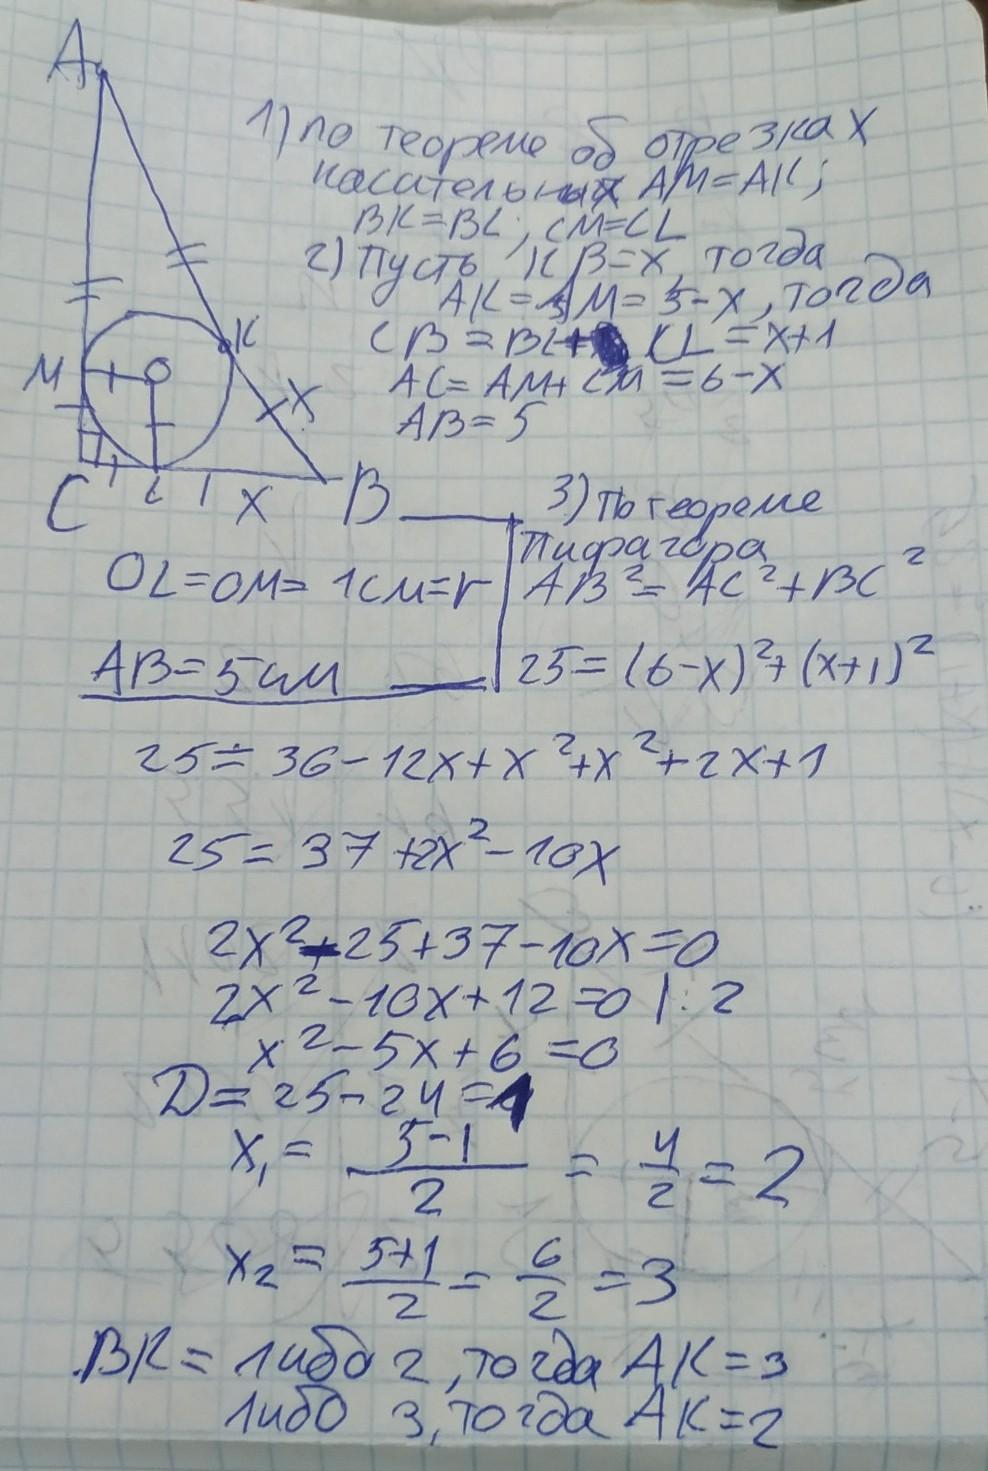 A
1) по теореме об отрезках
касательных AM=AK;
BK=BL; CM=CL
2) Пусть KB=x, тогда
AK=AM=5-x, тогда
CB=BL+CL=x+1
AC=AM+CM=6-x
AB=5
K
M
O
x
C
L
x
B
OL=OM=1см=r
AB=5см
3) По теореме
Пифагора
AB²=AC²+BC²
25=(6-x)²+(x+1)²
25=36-12x+x²+x²+2x+1
25=37+2x²-10x
2x²-25+37-10x=0
2x²-10x+12=0 |:2
x²-5x+6=0
D=25-24=1
x₁=\frac{5-1}{2}=\frac{4}{2}=2
x₂=\frac{5+1}{2}=\frac{6}{2}=3
BK=либо 2, тогда AK=3
либо 3, тогда AK=2